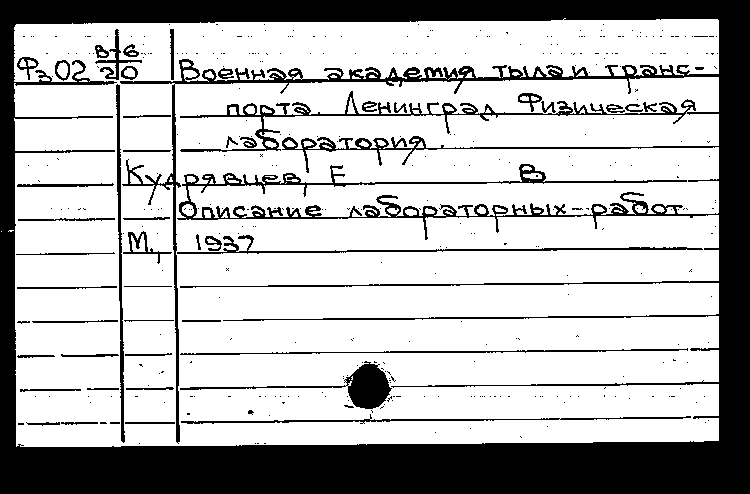 Фз02 В-6/20 Военная академия тыла и транс-
порта. Ленинград. Физическая
лаборатория.
Кудрявцев, Е В
Описание лабораторных работ.
М., 1937